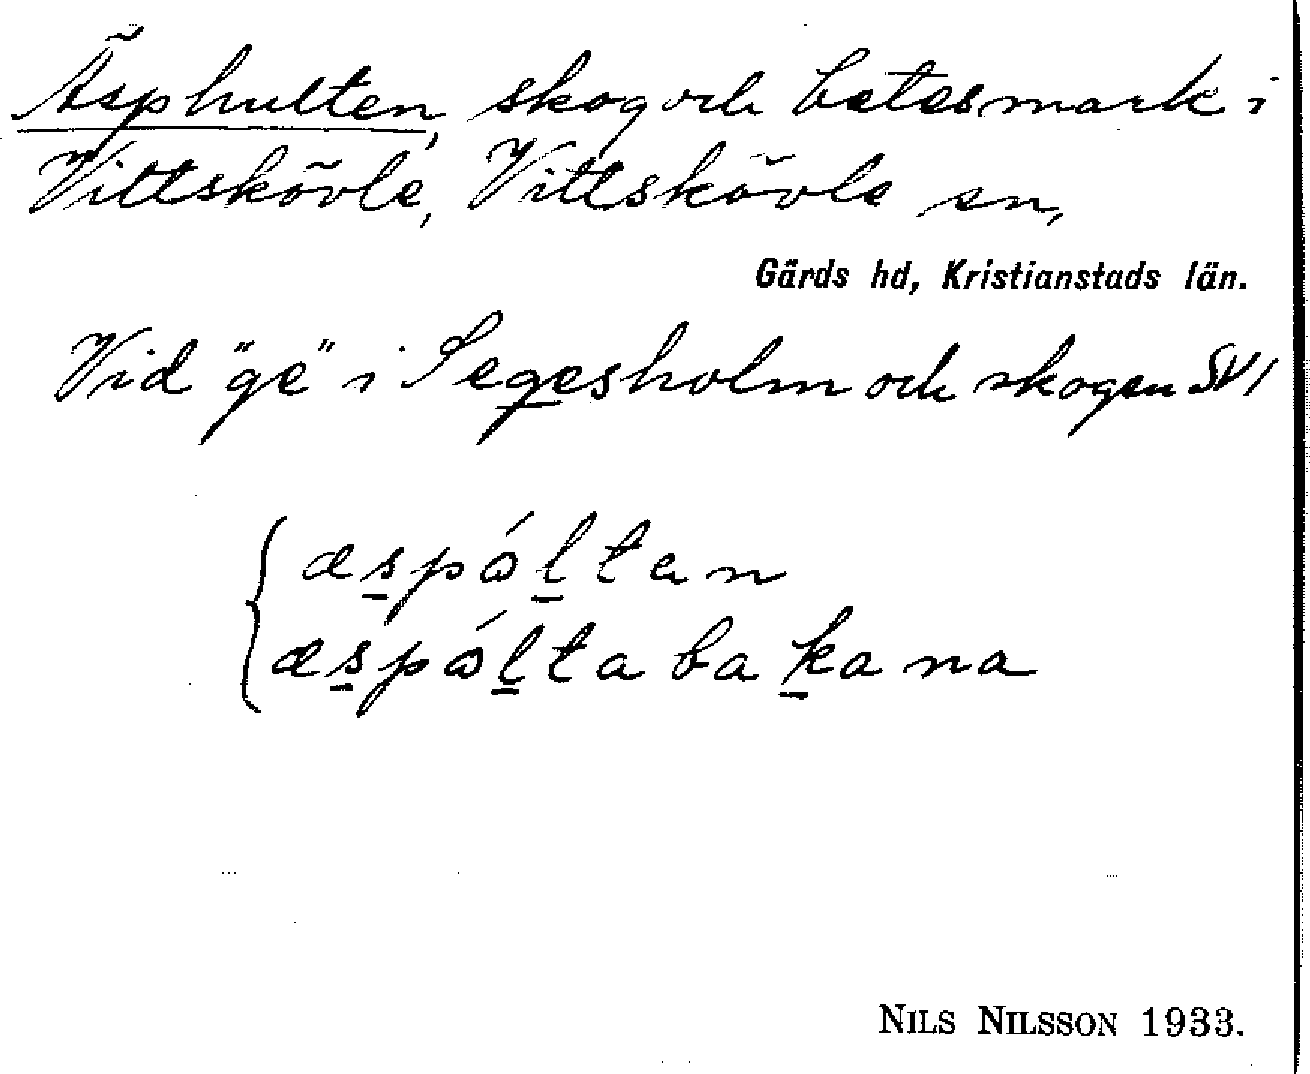 Äsphulten, skog och betesmark i
Vittskövle, Vittskövle sn,
Gärds hd, Kristianstads län.
Vid "ge" i Segesholm och skogen SV/
æspáltan
æspálta bakana
NILS NILSSON 1933.